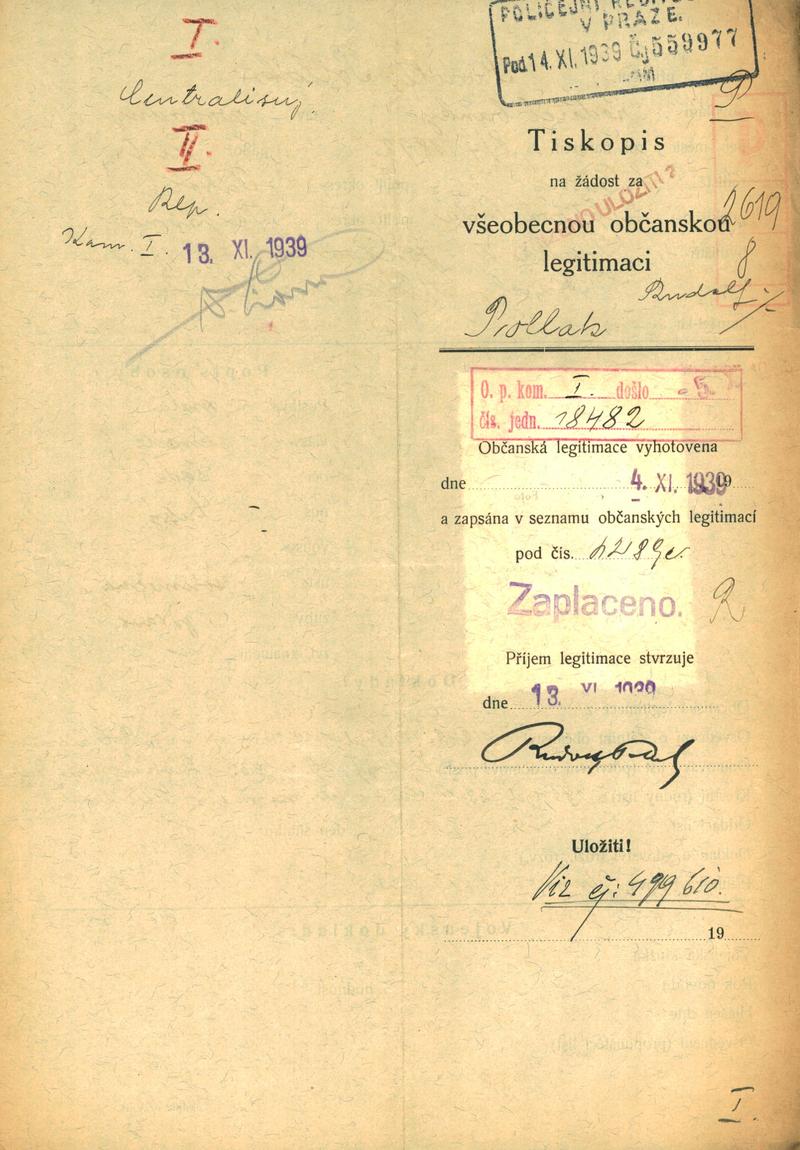 I.
II.
Rep.
Kom. I. 13. XI. 1939
POLICEJNÍ
V PRAZE.
Pod 14. XI. 1939 Čj 559977
P
Tiskopis
na žádost za
ULOŽITI?
všeobecnou občanskou
2619
8
legitimaci
Rudolf
Pollak
O. p. kom. I. došlo - 5.
čís. jedn. 18482
Občanská legitimace vyhotovena
dne 4. XI. 1939 19
a zapsána v seznamu občanských legitimací
pod čís.
Zaplaceno.
Příjem legitimace stvrzuje
dne 13. XI. 1939
Uložiti!
Viz čj: 499610.
19
I.